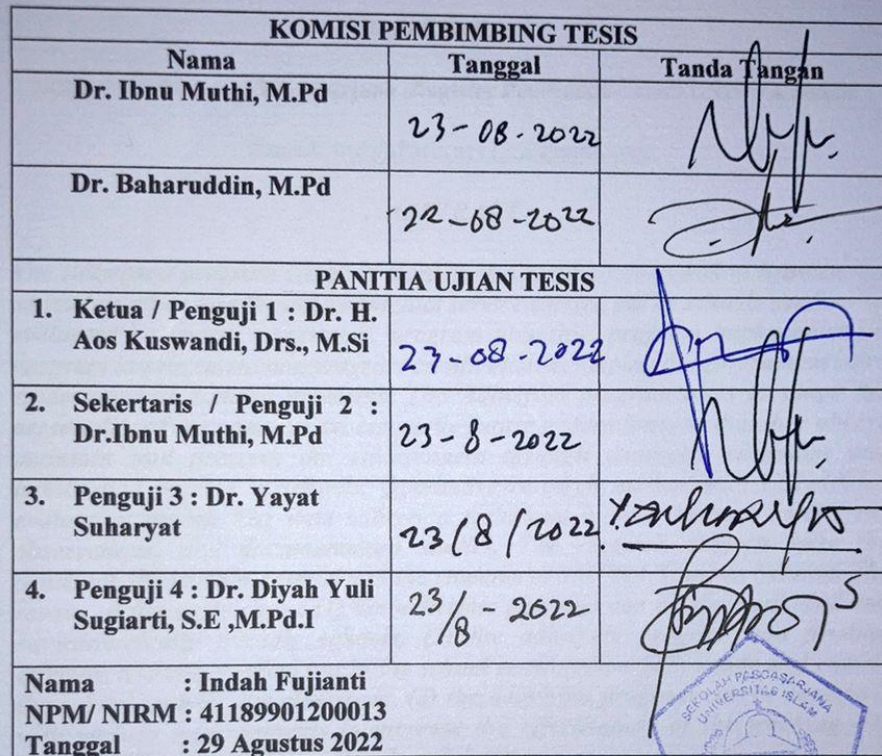 KOMISI PEMBIMBING TESIS
Nama Tanggal Tanda Tangan
Dr. Ibnu Muthi, M.Pd
23-08-2022
Dr. Baharuddin, M.Pd
22-08-2022
PANITIA UJIAN TESIS
1. Ketua / Penguji 1 : Dr. H.
Aos Kuswandi, Drs., M.Si
23-08-2022
2. Sekertaris Penguji 2 :
Dr.Ibnu Muthi, M.Pd
23-8-2022
3. Penguji 3 : Dr. Yayat
Suharyat
23/8/2022
4. Penguji 4 : Dr. Diyah Yuli
Sugiarti, S.E ,M.Pd.I
23/8-2022
Nama : Indah Fujianti
NPM/ NIRM : 41189901200013
Tanggal : 29 Agustus 2022
SEKOLAH PASCASARJANA
UNIVERSITAS ISLAM